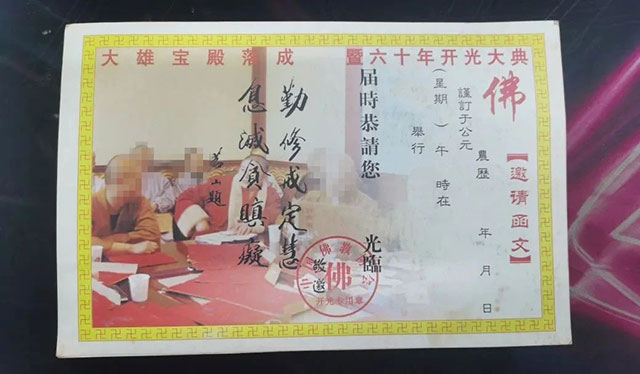 大雄宝殿落成 暨六十年开光大典
佛
【邀请函文】
謹訂于公元 農歷 年 月 日
(星期 )午 時在
舉行
届時恭請您 光臨
敬邀
勤修戒定慧
息滅貪瞋癡
佛
开光专用章